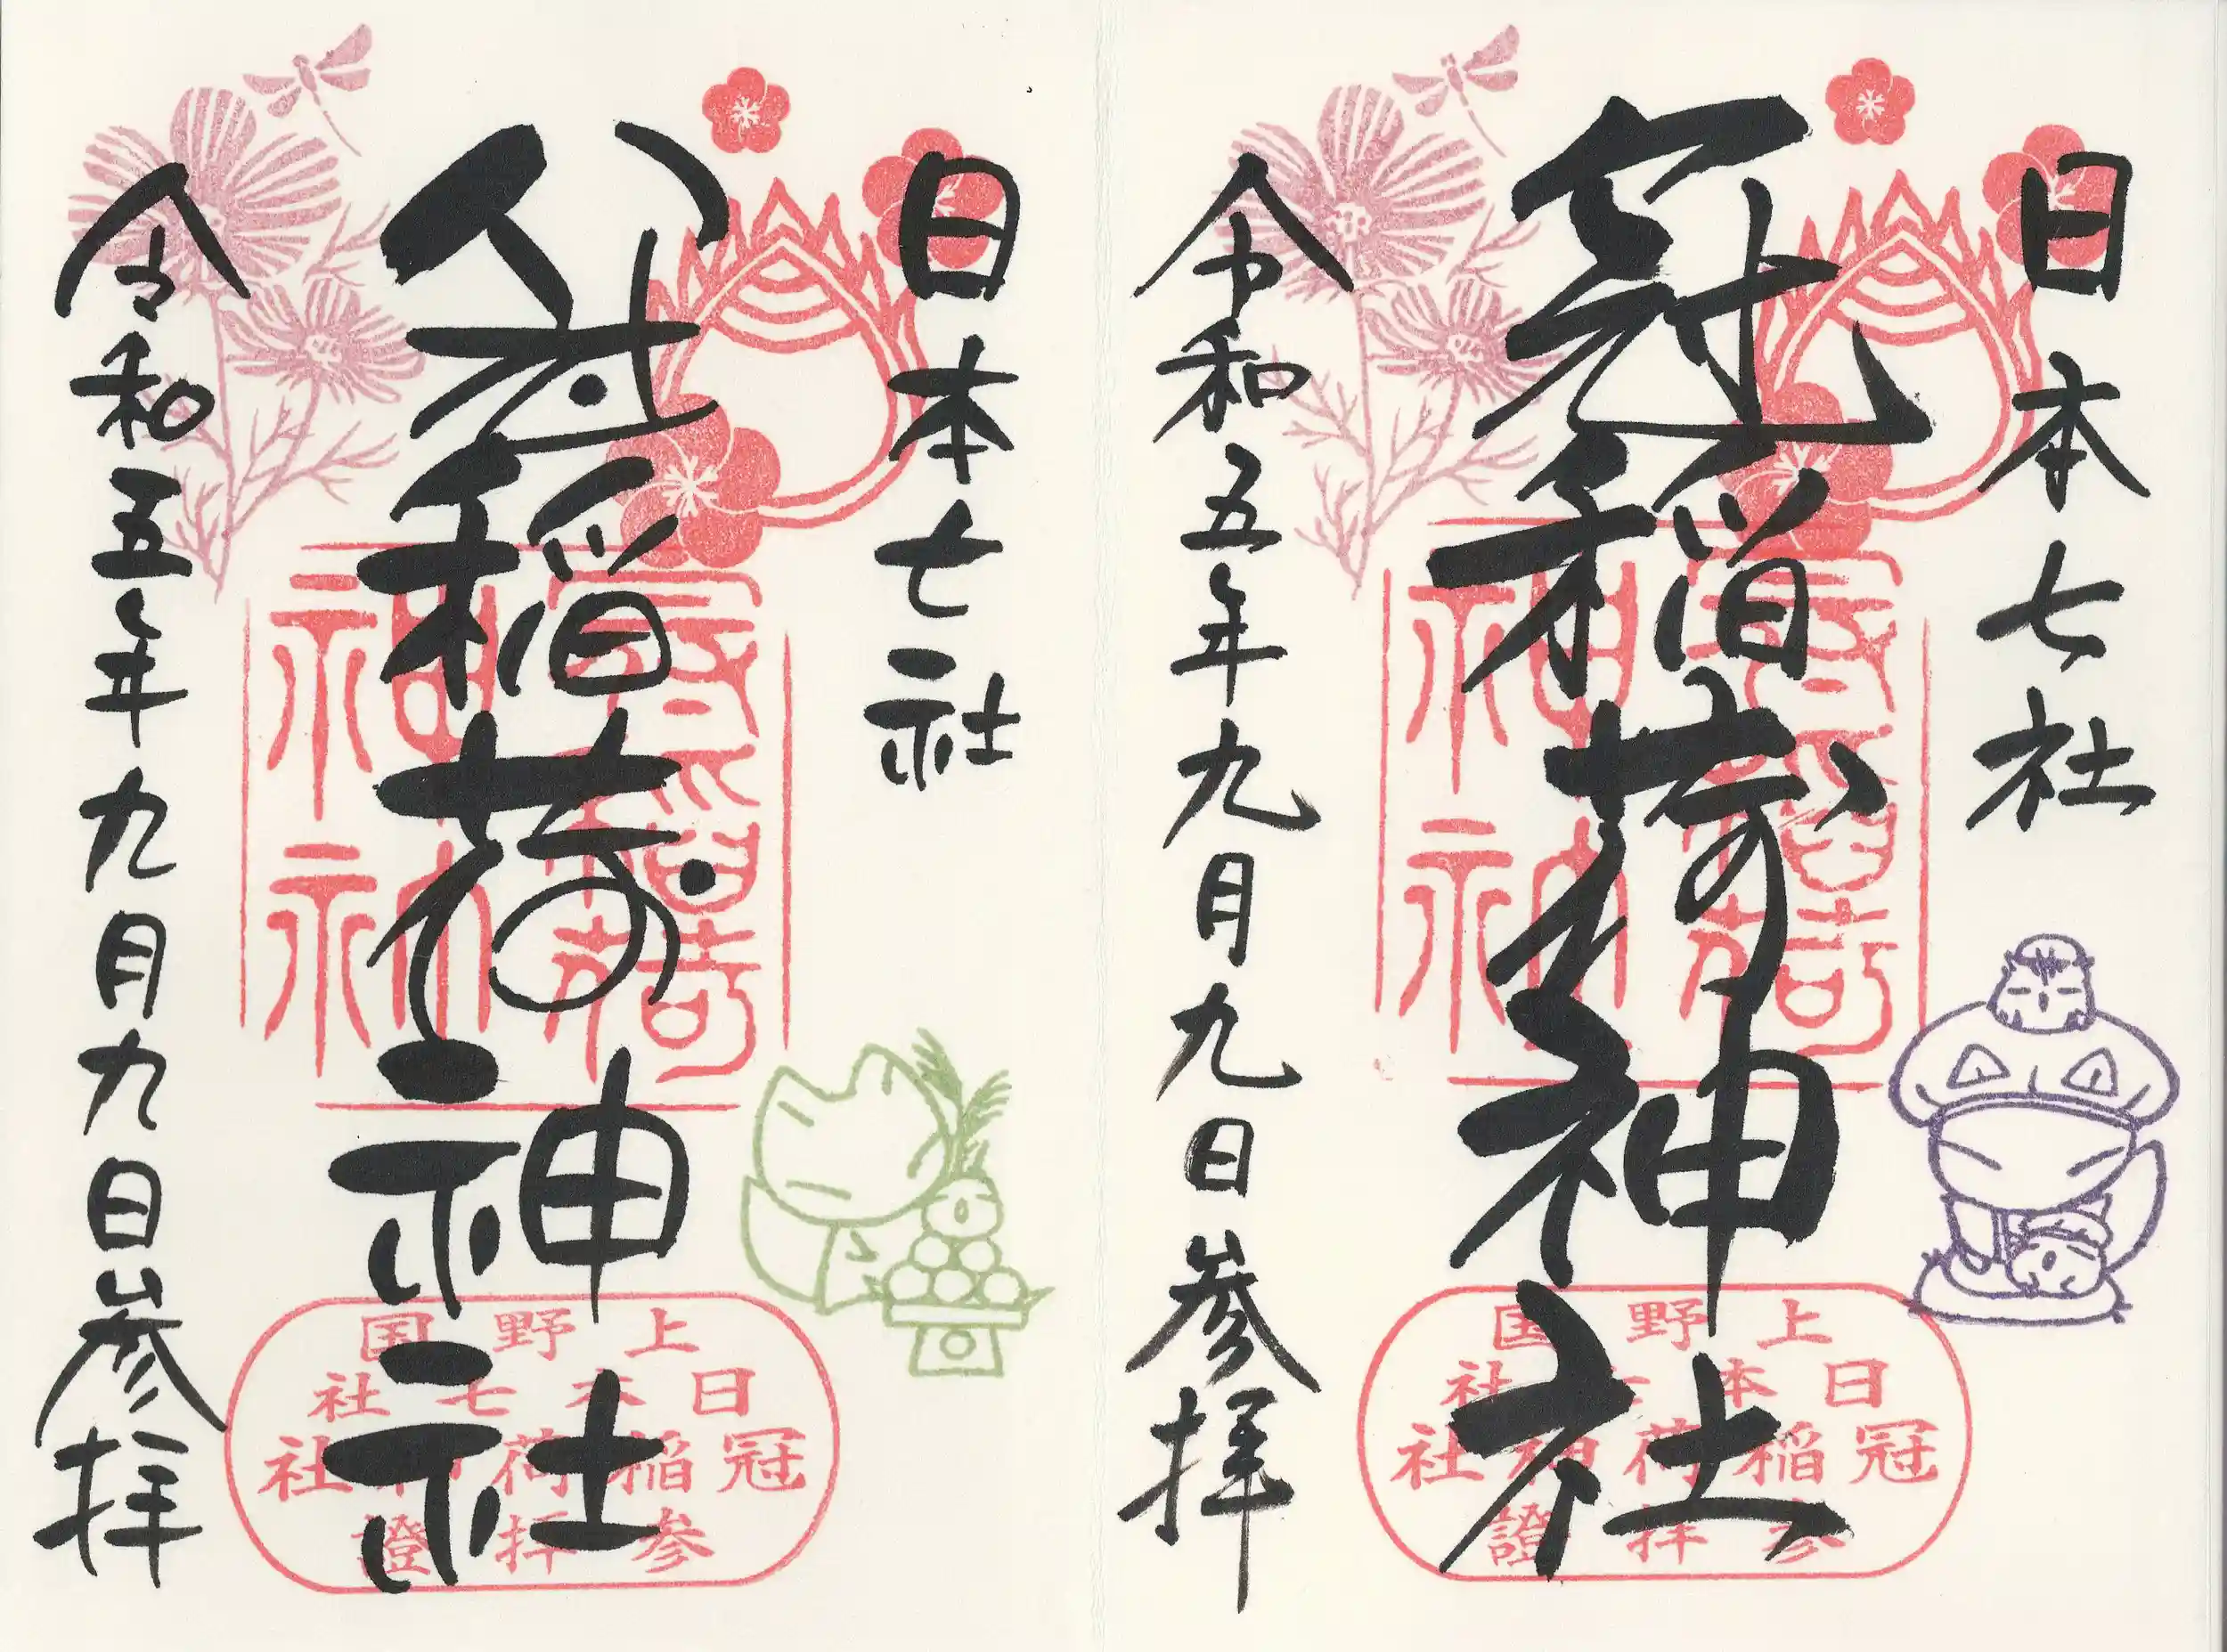 日本七社
冠稲荷神社
令和五年九月九日参拝
冠稲荷神社
上野国
日本七社
冠稲荷神社
参拝證
日本七社
冠稲荷神社
令和五年九月九日参拝
冠稲荷神社
上野国
日本七社
冠稲荷神社
参拝證